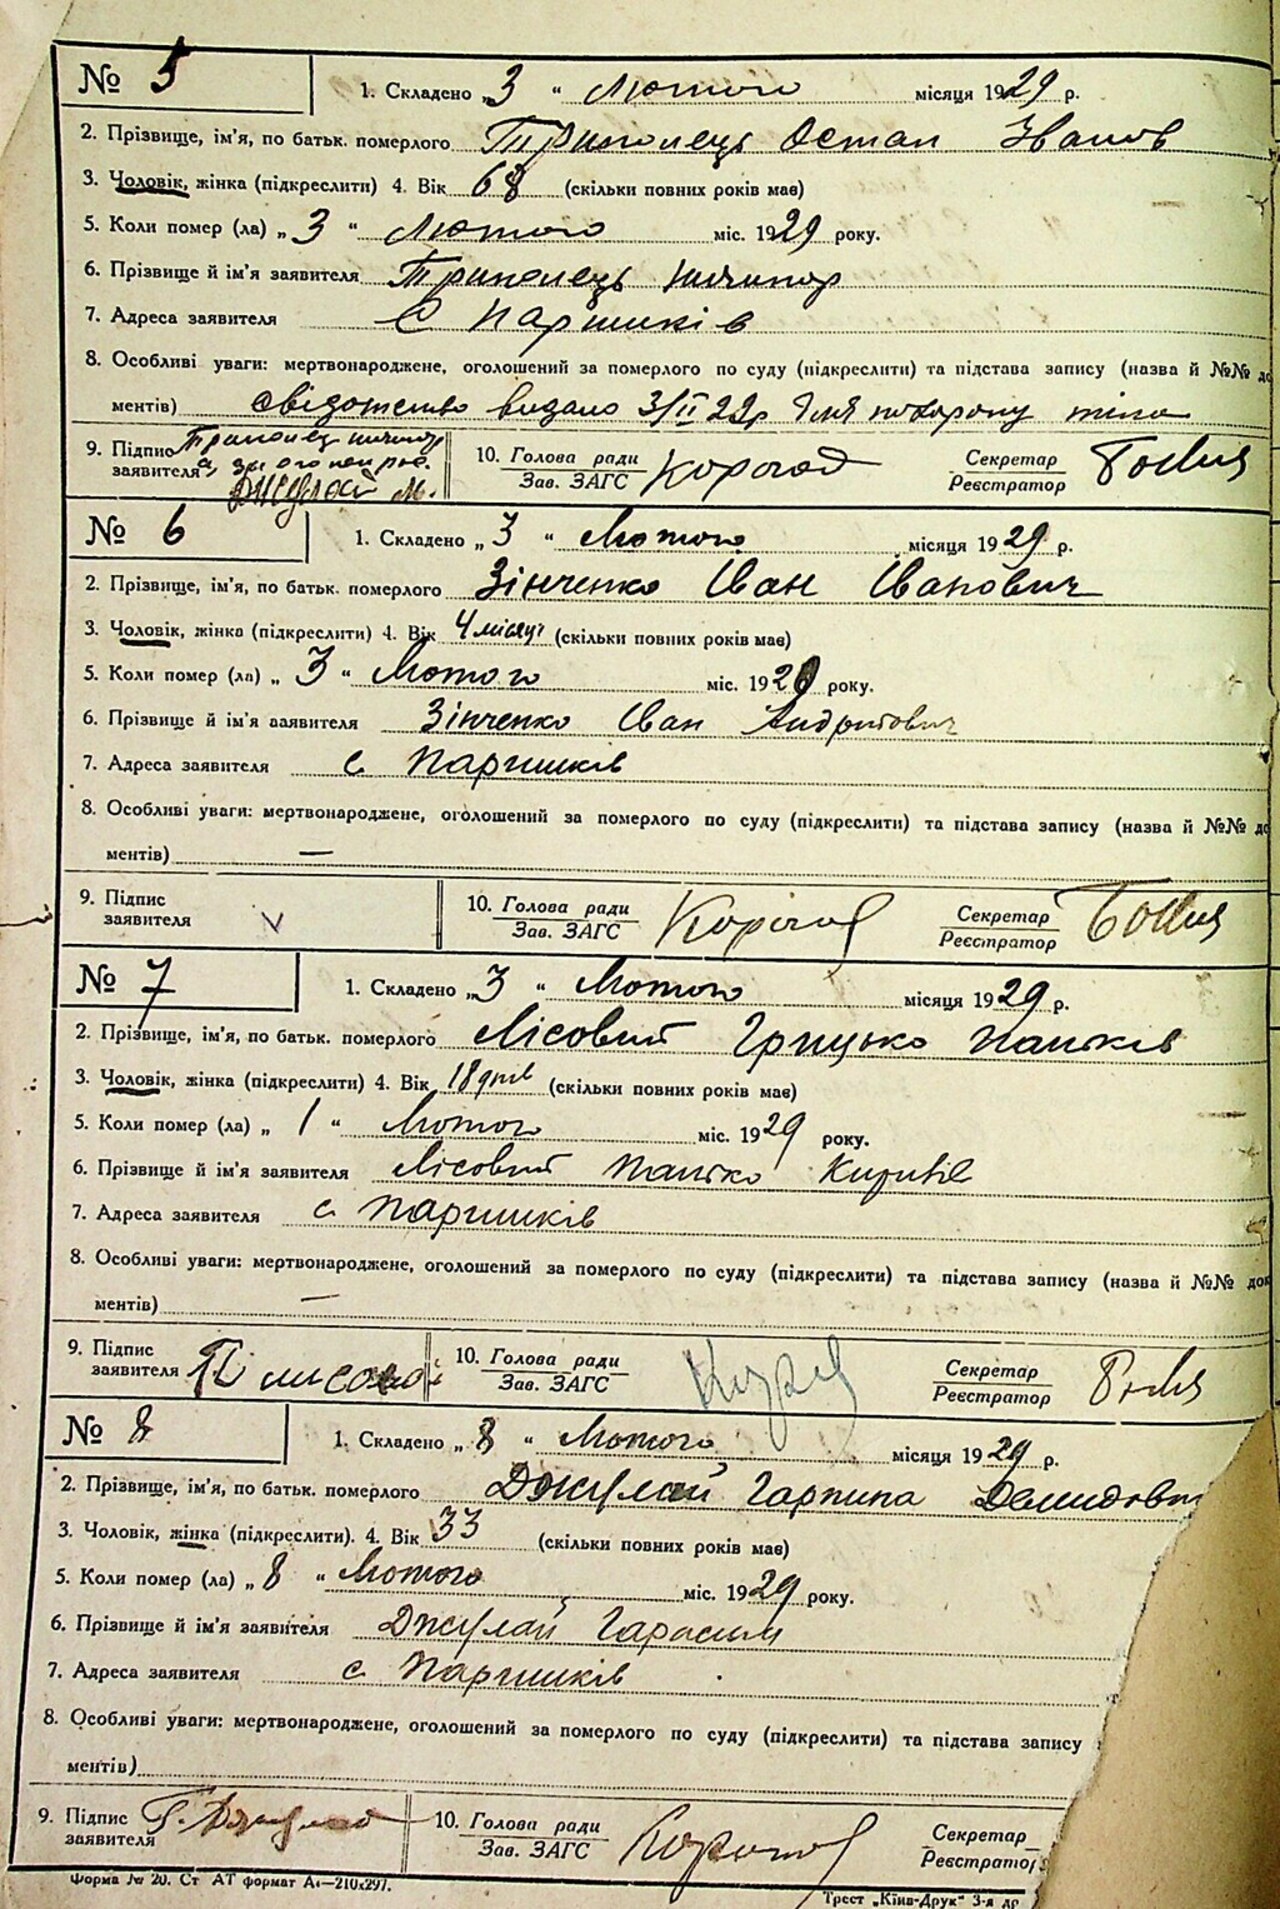 № 5 1. Складено „3“ Лютого місяця 1929 р.
2. Прізвище, ім'я, по батьк. померлого Триполець Остап Іванов
3. Чоловік, жінка (підкреслити) 4. Вік 68 (скільки повних років має)
5. Коли помер (ла) „3“ Лютого міс. 1929 року.
6. Прізвище й ім'я заявителя Триполець Ничипор
7. Адреса заявителя С Паришків
8. Особливі уваги: мертвонароджене, оголошений за померлого по суду (підкреслити) та підстава запису (назва й №№ до
ментів) свідотство видано 3/II 29р для похорону тіла
9. Підпис заявителя Триполец Ничипор а за його непис. Джулай М. 10. Голова ради Зав. ЗАГС Секретар Реєстратор
№ 6 1. Складено „3“ Лютого місяця 1929 р.
2. Прізвище, ім'я, по батьк. померлого Зінченко Іван Іванович
3. Чоловік, жінка (підкреслити) 4. Вік 4 місяці (скільки повних років має)
5. Коли помер (ла) „3“ Лютого міс. 192 року.
6. Прізвище й ім'я заявителя Зінченко Іван Андритович
7. Адреса заявителя с Паришків
8. Особливі уваги: мертвонароджене, оголошений за померлого по суду (підкреслити) та підстава запису (назва й №№ до
ментів) —
9. Підпис заявителя V 10. Голова ради Зав. ЗАГС Секретар Реєстратор
№ 7 1. Складено „3“ Лютого місяця 1929 р.
2. Прізвище, ім'я, по батьк. померлого Лісовий Грицько Паньків
3. Чоловік, жінка (підкреслити) 4. Вік 18 днів (скільки повних років має)
5. Коли помер (ла) „1“ Лютого міс. 1929 року.
6. Прізвище й ім'я заявителя Лісовий Панько
7. Адреса заявителя с Паришків
8. Особливі уваги: мертвонароджене, оголошений за померлого по суду (підкреслити) та підстава запису (назва й №№ док
ментів) —
9. Підпис заявителя П лисовой 10. Голова ради Зав. ЗАГС Секретар Реєстратор
№ 8 1. Складено „8“ Лютого місяця 1929 р.
2. Прізвище, ім'я, по батьк. померлого Джулай Гарпина Демидовн
3. Чоловік, жінка (підкреслити). 4. Вік 33 (скільки повних років має)
5. Коли помер (ла) „8“ Лютого міс. 1929 року.
6. Прізвище й ім'я заявителя Джулай Гарасим
7. Адреса заявителя с Паришків
8. Особливі уваги: мертвонароджене, оголошений за померлого по суду (підкреслити) та підстава запису
ментів)
9. Підпис заявителя Г. Джулай 10. Голова ради Зав. ЗАГС Секретар Реєстратор
Форма № 20. Ст АТ формат А₄—210x297. Трест „Київ-Друк“ 3-я др